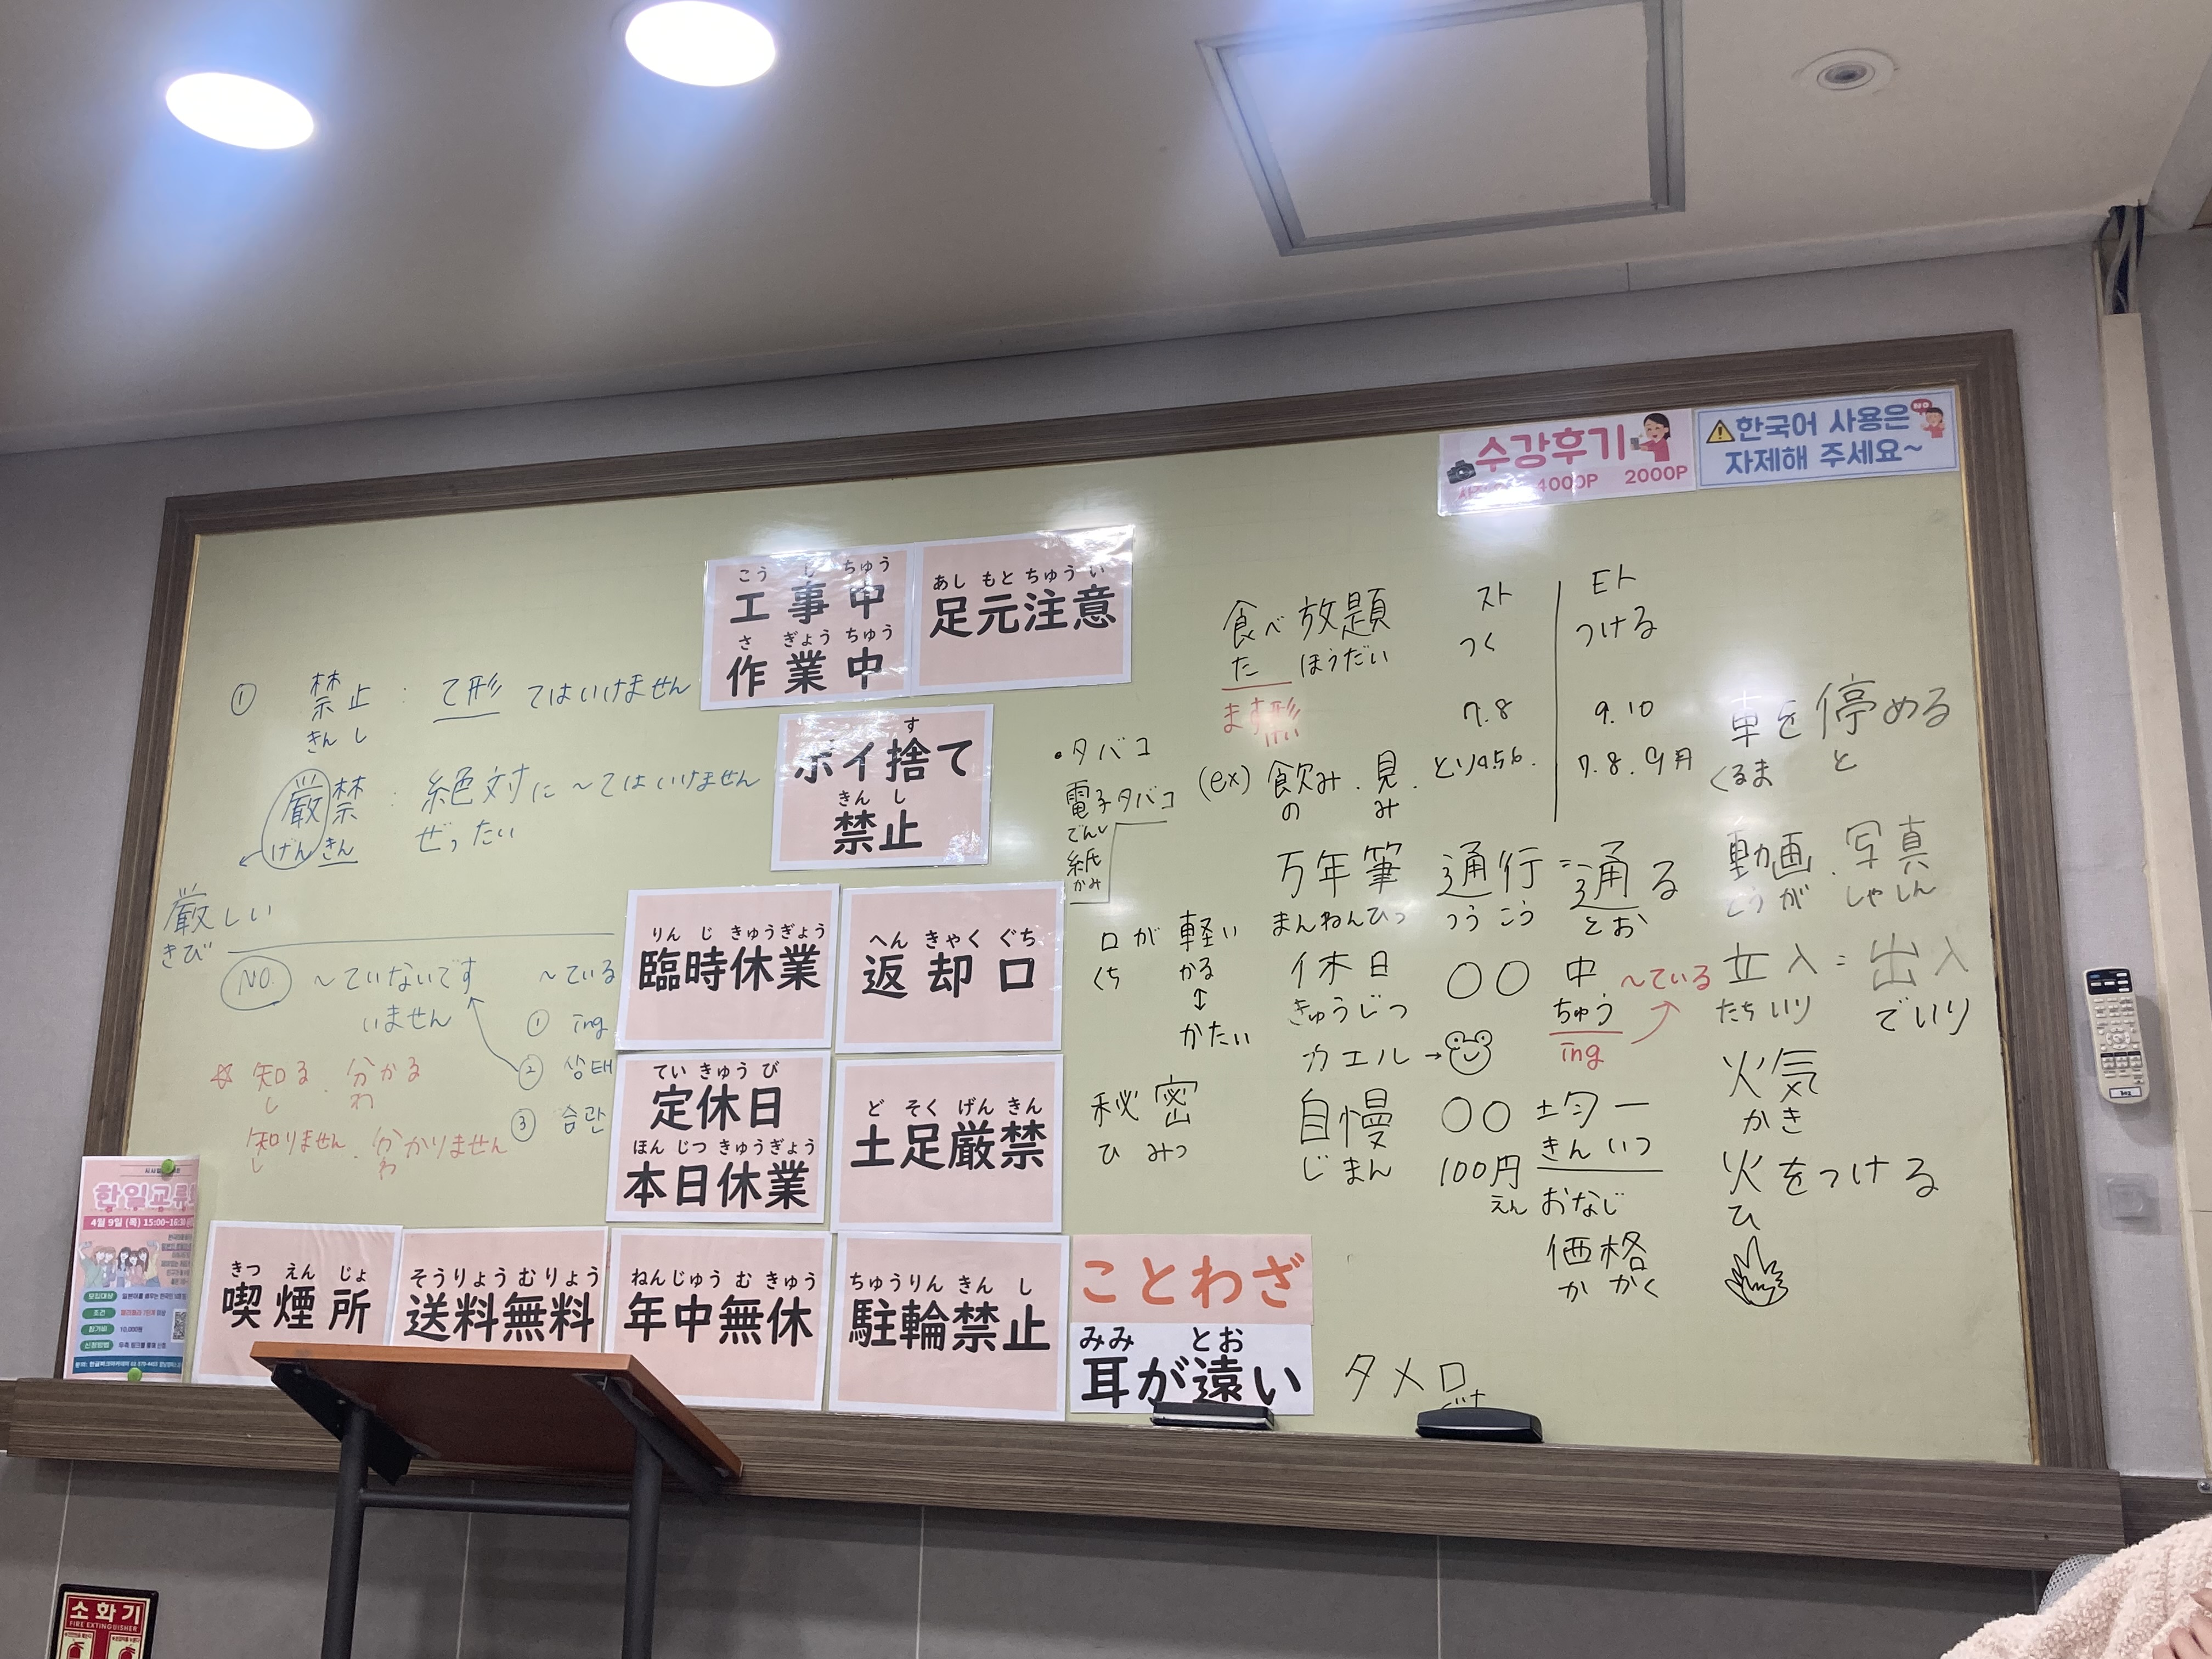 수강후기
4000P 2000P
한국어 사용은
자제해 주세요~
NO
① 禁止 : て形 てはいけません
きん し
厳禁 : 絶対に ~てはいけません
げん きん ぜったい
厳しい
きび
NO. ~ていないです
いません
~ている
① ing
② 상태
③ 습관
☆ 知る . 分かる
し わ
知りません . 分かりません
し わ
こう じ ちゅう
工事中
さ ぎょう ちゅう
作業中
あし もと ちゅう い
足元注意
す
ポイ捨て
きん し
禁止
りん じ きゅうぎょう
臨時休業
へん きゃく ぐち
返却口
てい きゅう び
定休日
ほん じつ きゅうぎょう
本日休業
ど そく げん きん
土足厳禁
きつ えん じょ
喫煙所
そうりょう むりょう
送料無料
ねんじゅう む きゅう
年中無休
ちゅうりん きん し
駐輪禁止
ことわざ
みみ とお
耳が遠い
・タバコ
電子タバコ
でんし
紙
かみ
口が軽い
くち かる
↕
かたい
秘密
ひ みつ
食べ放題
た ほうだい
ます形
(ex) 飲み . 見 .
の み
万年筆
まんねんひつ
休日
きゅうじつ
カエル →
自慢
じまん
タメ口
スト
つく
7.8
Eト
つける
9.10
通行 = 通る
つう こう とお
〇〇 中 ~ている
ちゅう
ing
〇〇 均一
きん いつ
100円
えん おなじ
価格
か かく
車を停める
くるま と
動画 . 写真
どう が しゃしん
立入 = 出入
たち いり でいり
火気
か き
火をつける
ひ
4월 9일 (목) 15:00~16:30
모집대상
조건
참가비 10,000원
신청방법
소화기
FIRE EXTINGUISHER